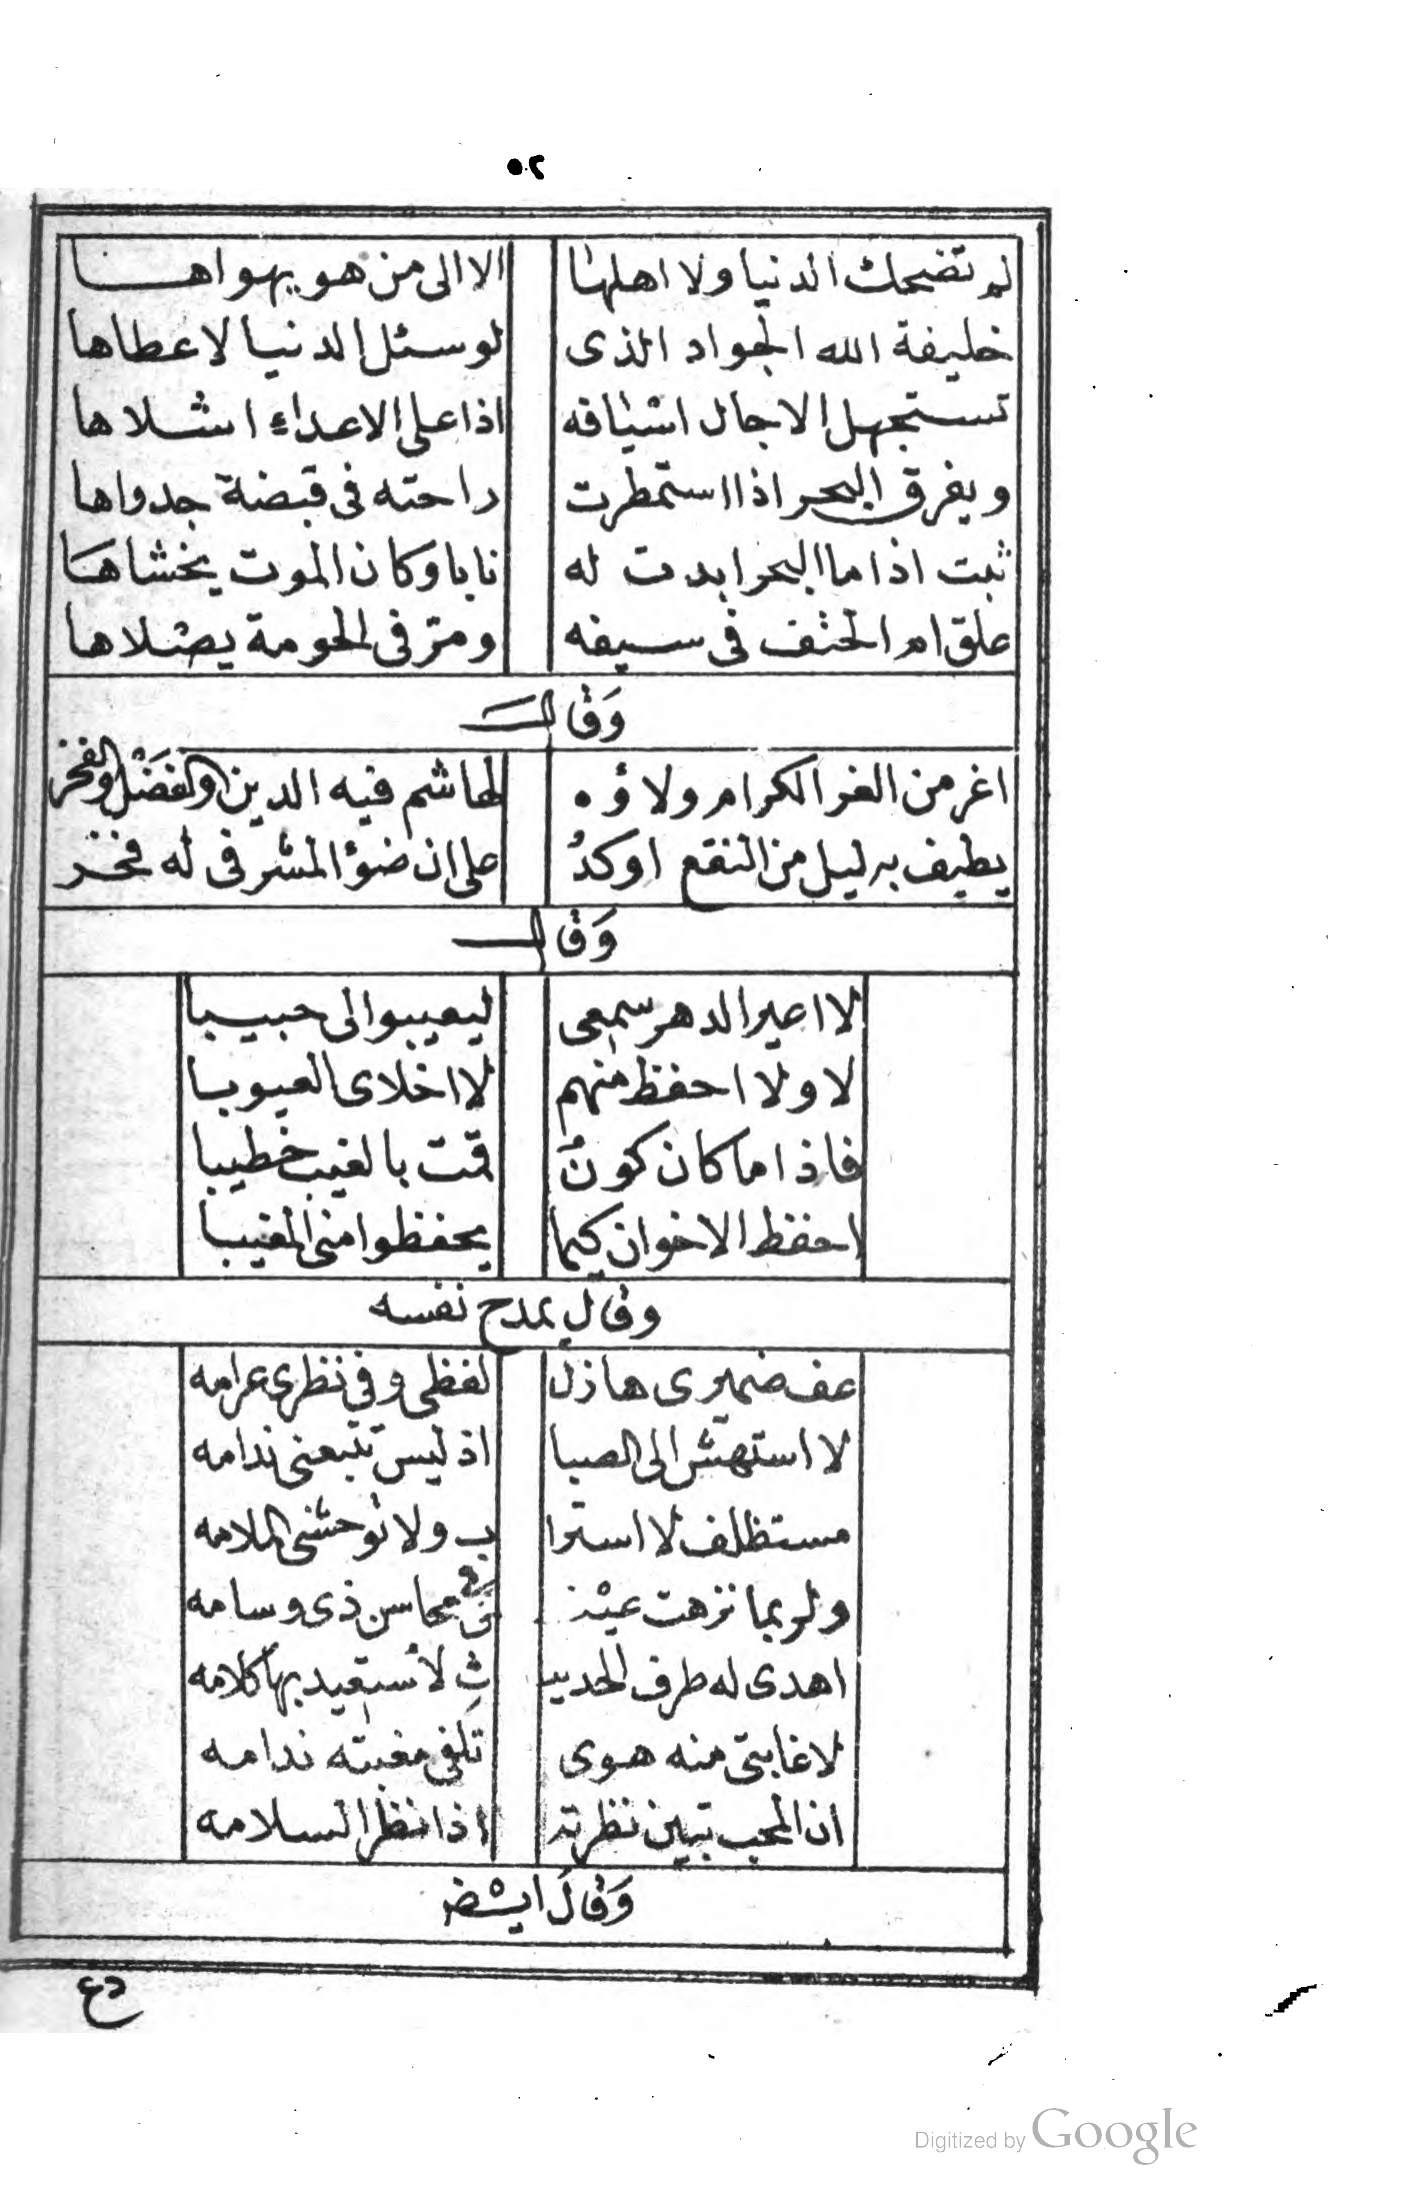 ٥٢
لم تضحك الدنيا ولا اهلها الا الى من هو يهواها
خليفة الله الجواد الذى لو سئل الدنيا لاعطاها
تستجهل الاجال اسيافه اذا على الاعداء اشلاها
ويغرق البحر اذا استمطرت راحته فى قبضة جدواها
ثبت اذا ما البحر ابدت له نابا وكان الموت يخشاها
علق ام الحتف فى سيفه ومر فى الحومة يصلاها
وَقال
اغر من الغر الكرام ولاؤه لهاشم فيه الدين والفضل والفخر
يطيف به ليل من النقع اوكدُ على ان ضوٴ المشرفى له فخر
وَقال
لا اعير الدهر سمعى ليعيبوا لى حبيبا
لا ولا احفظ منهم لا اخلاى العيوبا
فاذا ما كان كونٌ قمت بالغيب خطيبا
احفظ الاخوان كيما يحفظوا منى المغيبا
وقال يمدح نفسه
عف ضميرى هازل لفظى وفى نظرى عرامه
لا استهش الى الصبا اذ ليس تتبعنى ندامه
مستظلف لا استرا ب ولا توحشنى الملامه
ولربما نزهت عيْنـ ـنى فى محاسن ذى وسامه
اهدى له طرف الحديـ ـثِ لأستعيد بها كلامه
لا غايتى منه هوى تلفى مغبته ندامه
ان المحب تبين نظرته اذا نظر السلامه
وَقالَ ايْضا
دع
Digitized by Google